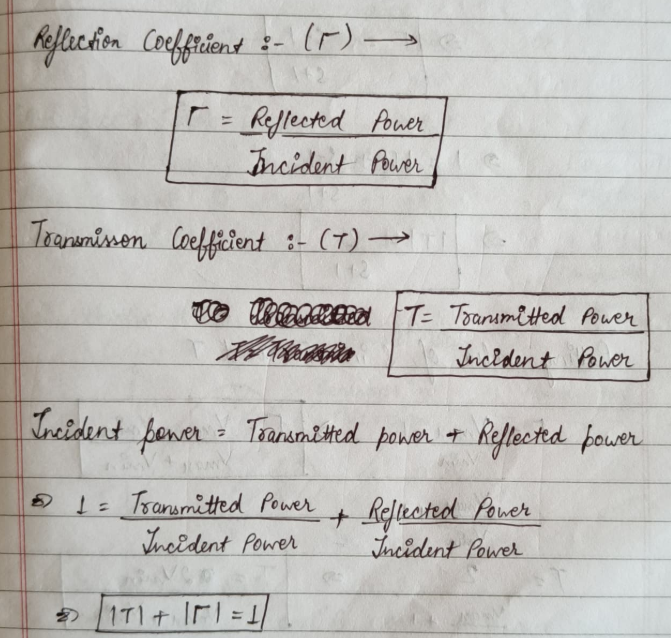 Reflection Coefficient :- (Γ) →
Γ = Reflected Power / Incident Power
Transmisson Coefficient :- (T) →
T = Transmitted Power / Incident Power
Incident power = Transmitted power + Reflected power
⇒ 1 = Transmitted Power / Incident Power + Reflected Power / Incident Power
⇒ |T| + |Γ| = 1